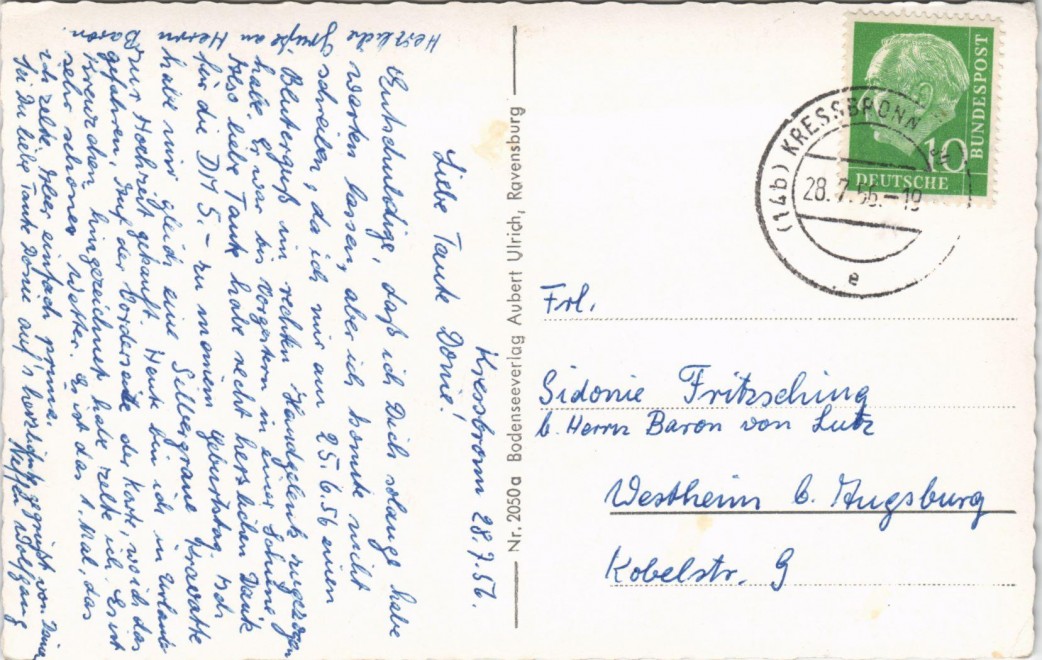 Kressbronn 28.7.56.
Liebe Tante Donie!
Entschuldige, daß ich Dich solange habe
warten lassen, aber ich konnte nicht
schreiben, da ich mir am 25.6.56 einen
Bluterguß im rechten Handgelenk zugezogen
habe. Er war bis vorgestern in einer Schiene
Also liebe Tante habe recht herzlichen Dank
für die DM 5.- zu meinem Geburtstag. Ich
habe mir gleich eine Silbergraue Krawatte
zur Hochzeit gekauft. Heute bin ich in Urlaub
gefahren. Auf der Vorderseite der Karte, wo ich das
Kreuzchen hingezeichnet habe zelte ich. Es ist
sehr schönes Wetter. Es ist das 1. Mal, das
ich zelte. Aber einfach prima.
Sei Du liebe Tante Donie auf's herzlichste gegrüßt von Deinem
Neffen Wolfgang
Herzliche Grüße an Herrn
Baron.
Nr. 2050a Bodenseeverlag Aubert Ulrich, Ravensburg
DEUTSCHE
BUNDESPOST
10
(14b) KRESSBRONN
28.7.56.-19
e
Frl.
Sidonie Fritzsching
b. Herrn Baron von Lutz
Westheim b. Augsburg
Kobelstr. 9